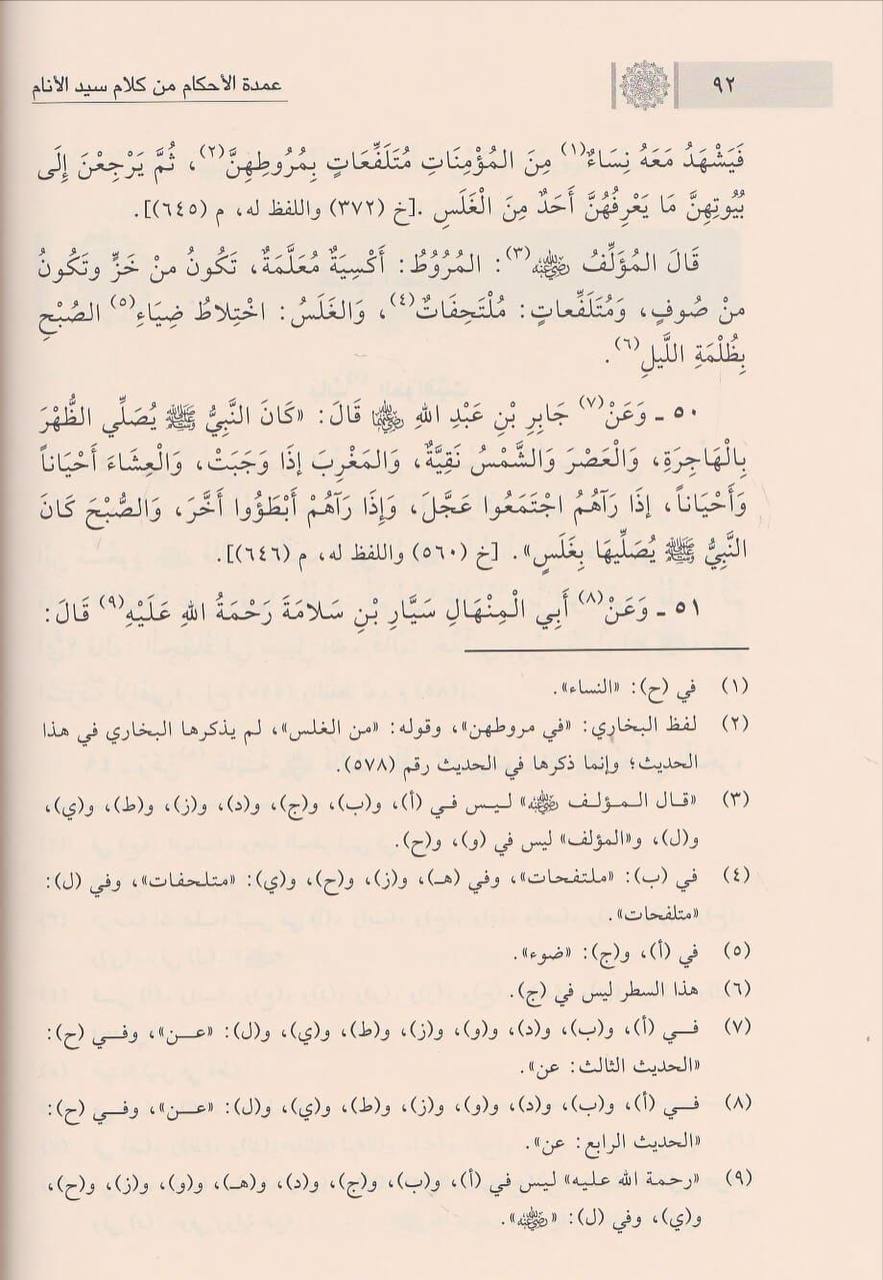 ٩٢
عمدة الأحكام من كلام سيد الأنام
فَيَشْهَدُ مَعَهُ نِسَاءٌ(١) مِنَ المُؤْمِنَاتِ مُتَلَفِّعَاتٍ بِمُرُوطِهِنَّ(٢)، ثُمَّ يَرْجِعْنَ إِلَى
بُيُوتِهِنَّ مَا يَعْرِفُهُنَّ أَحَدٌ مِنَ الْغَلَسِ .[خ (٣٧٢) واللفظ له، م (٦٤٥)].
قَالَ المُؤَلِّفُ ﵁(٣): المُرُوُطُ: أَكْسِيَةٌ مُعَلَّمَةٌ، تَكُونُ مِنْ خَزٍّ وتَكُونُ
مِنْ صُوفٍ، وَمُتَلَفِّعاتٍ: مُلْتَحِفَاتٌ(٤)، وَالغَلَسُ: اخْتِلاطُ ضِيَاءِ(٥) الصُبْحِ
بِظُلْمَةِ اللَّيلِ(٦).
٥٠ ـ وَعَنْ(٧) جَابِرِ بْنِ عَبْدِ اللهِ ﵄ قَالَ: «كَانَ النَّبِيُّ ﷺ يُصَلِّي الظُّهْرَ
بِالْهَاجِرَةِ، وَالعَصْرَ وَالشَّمْسُ نَقِيَّةٌ، وَالمَغْرِبَ إذَا وَجَبَتْ، وَالْعِشَاءَ أَحْيَاناً
وَأَحْيَاناً، إذَا رَآهُمُ اجْتَمَعُوا عَجَّلَ، وَإِذَا رَآهُمْ أَبْطَؤُوا أَخَّرَ، وَالصُّبْحَ كَانَ
النَّبِيُّ ﷺ يُصَلِّيهَا بِغَلَسٍ». [خ (٥٦٠) واللفظ له، م (٦٤٦)].
٥١ ـ وَعَنْ(٨) أَبِي الْمِنْهَالِ سَيَّارِ بْنِ سَلامَةَ رَحْمَةُ اللهِ عَلَيْهِ(٩) قَالَ:
(١) في (ح): «النساء».
(٢) لفظ البخاري: «في مروطهن»، وقوله: «من الغلس»، لم يذكرها البخاري في هذا
الحديث؛ وإنما ذكرها في الحديث رقم (٥٧٨).
(٣) «قال المؤلف ﵁» ليس في (أ)، و(ب)، و(ج)، و(د)، و(ز)، و(ط)، و(ي)،
و(ل)، و«المؤلف» ليس في (و)، و(ح).
(٤) في (ب): «ملتفحات»، وفي (هـ)، و(ز)، و(ح)، و(ي): «متلحفات»، وفي (ل):
«متلفحات».
(٥) في (أ)، و(ج): «ضوء».
(٦) هذا السطر ليس في (ج).
(٧) في (أ)، و(ب)، و(د)، و(و)، و(ز)، و(ط)، و(ي)، و(ل): «عن»، وفي (ح):
«الحديث الثالث: عن».
(٨) في (أ)، و(ب)، و(د)، و(و)، و(ز)، و(ط)، و(ي)، و(ل): «عن»، وفي (ح):
«الحديث الرابع: عن».
(٩) «رحمة الله عليه» ليس في (أ)، و(ب)، و(ج)، و(د)، و(هـ)، و(و)، و(ز)، و(ح)،
و(ي)، وفي (ل): «﵁».